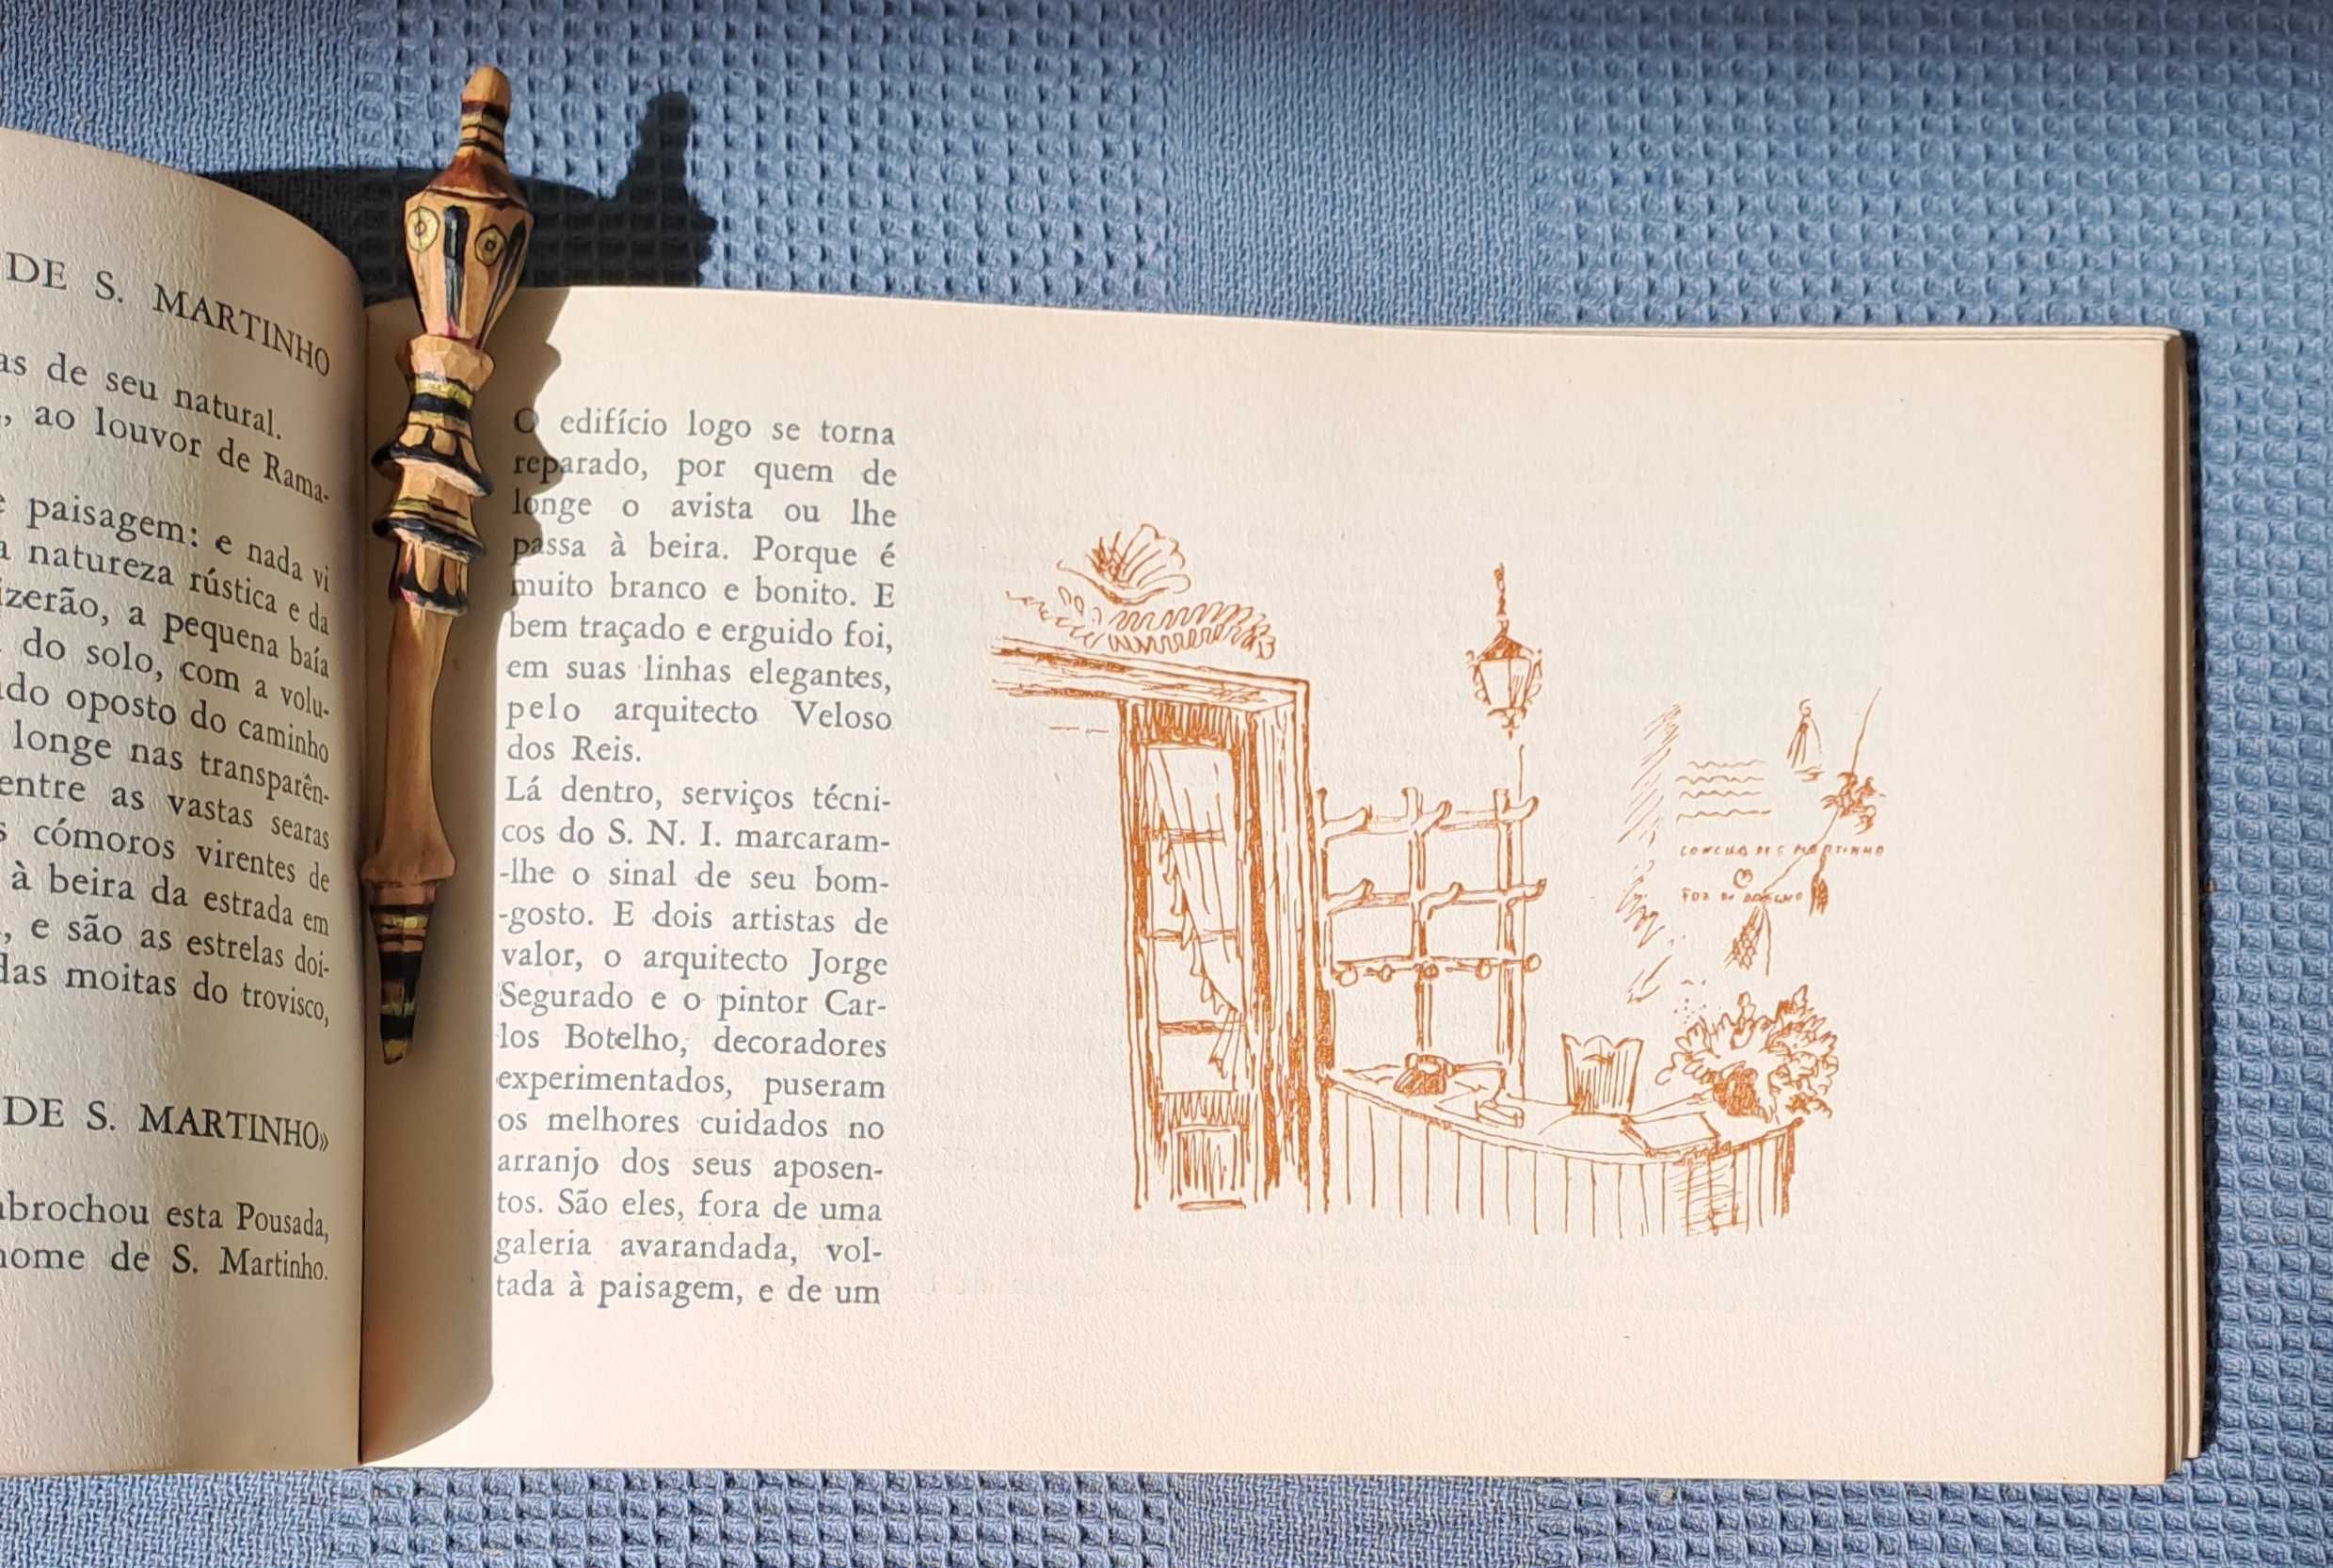 DE S. MARTINHO
as de seu natural.
, ao louvor de Rama-
paisagem: e nada vi
natureza rústica e da
izerão, a pequena baía
do solo, com a volu-
do oposto do caminho
longe nas transparên-
entre as vastas searas
s cómoros virentes de
à beira da estrada em
, e são as estrelas doi-
das moitas do trovisco,
DE S. MARTINHO»
abrochou esta Pousada,
nome de S. Martinho.
O edifício logo se torna
reparado, por quem de
longe o avista ou lhe
passa à beira. Porque é
muito branco e bonito. E
bem traçado e erguido foi,
em suas linhas elegantes,
pelo arquitecto Veloso
dos Reis.
Lá dentro, serviços técni-
cos do S. N. I. marcaram-
-lhe o sinal de seu bom-
-gosto. E dois artistas de
valor, o arquitecto Jorge
Segurado e o pintor Car-
los Botelho, decoradores
experimentados, puseram
os melhores cuidados no
arranjo dos seus aposen-
tos. São eles, fora de uma
galeria avarandada, vol-
tada à paisagem, e de um
MARTINHO